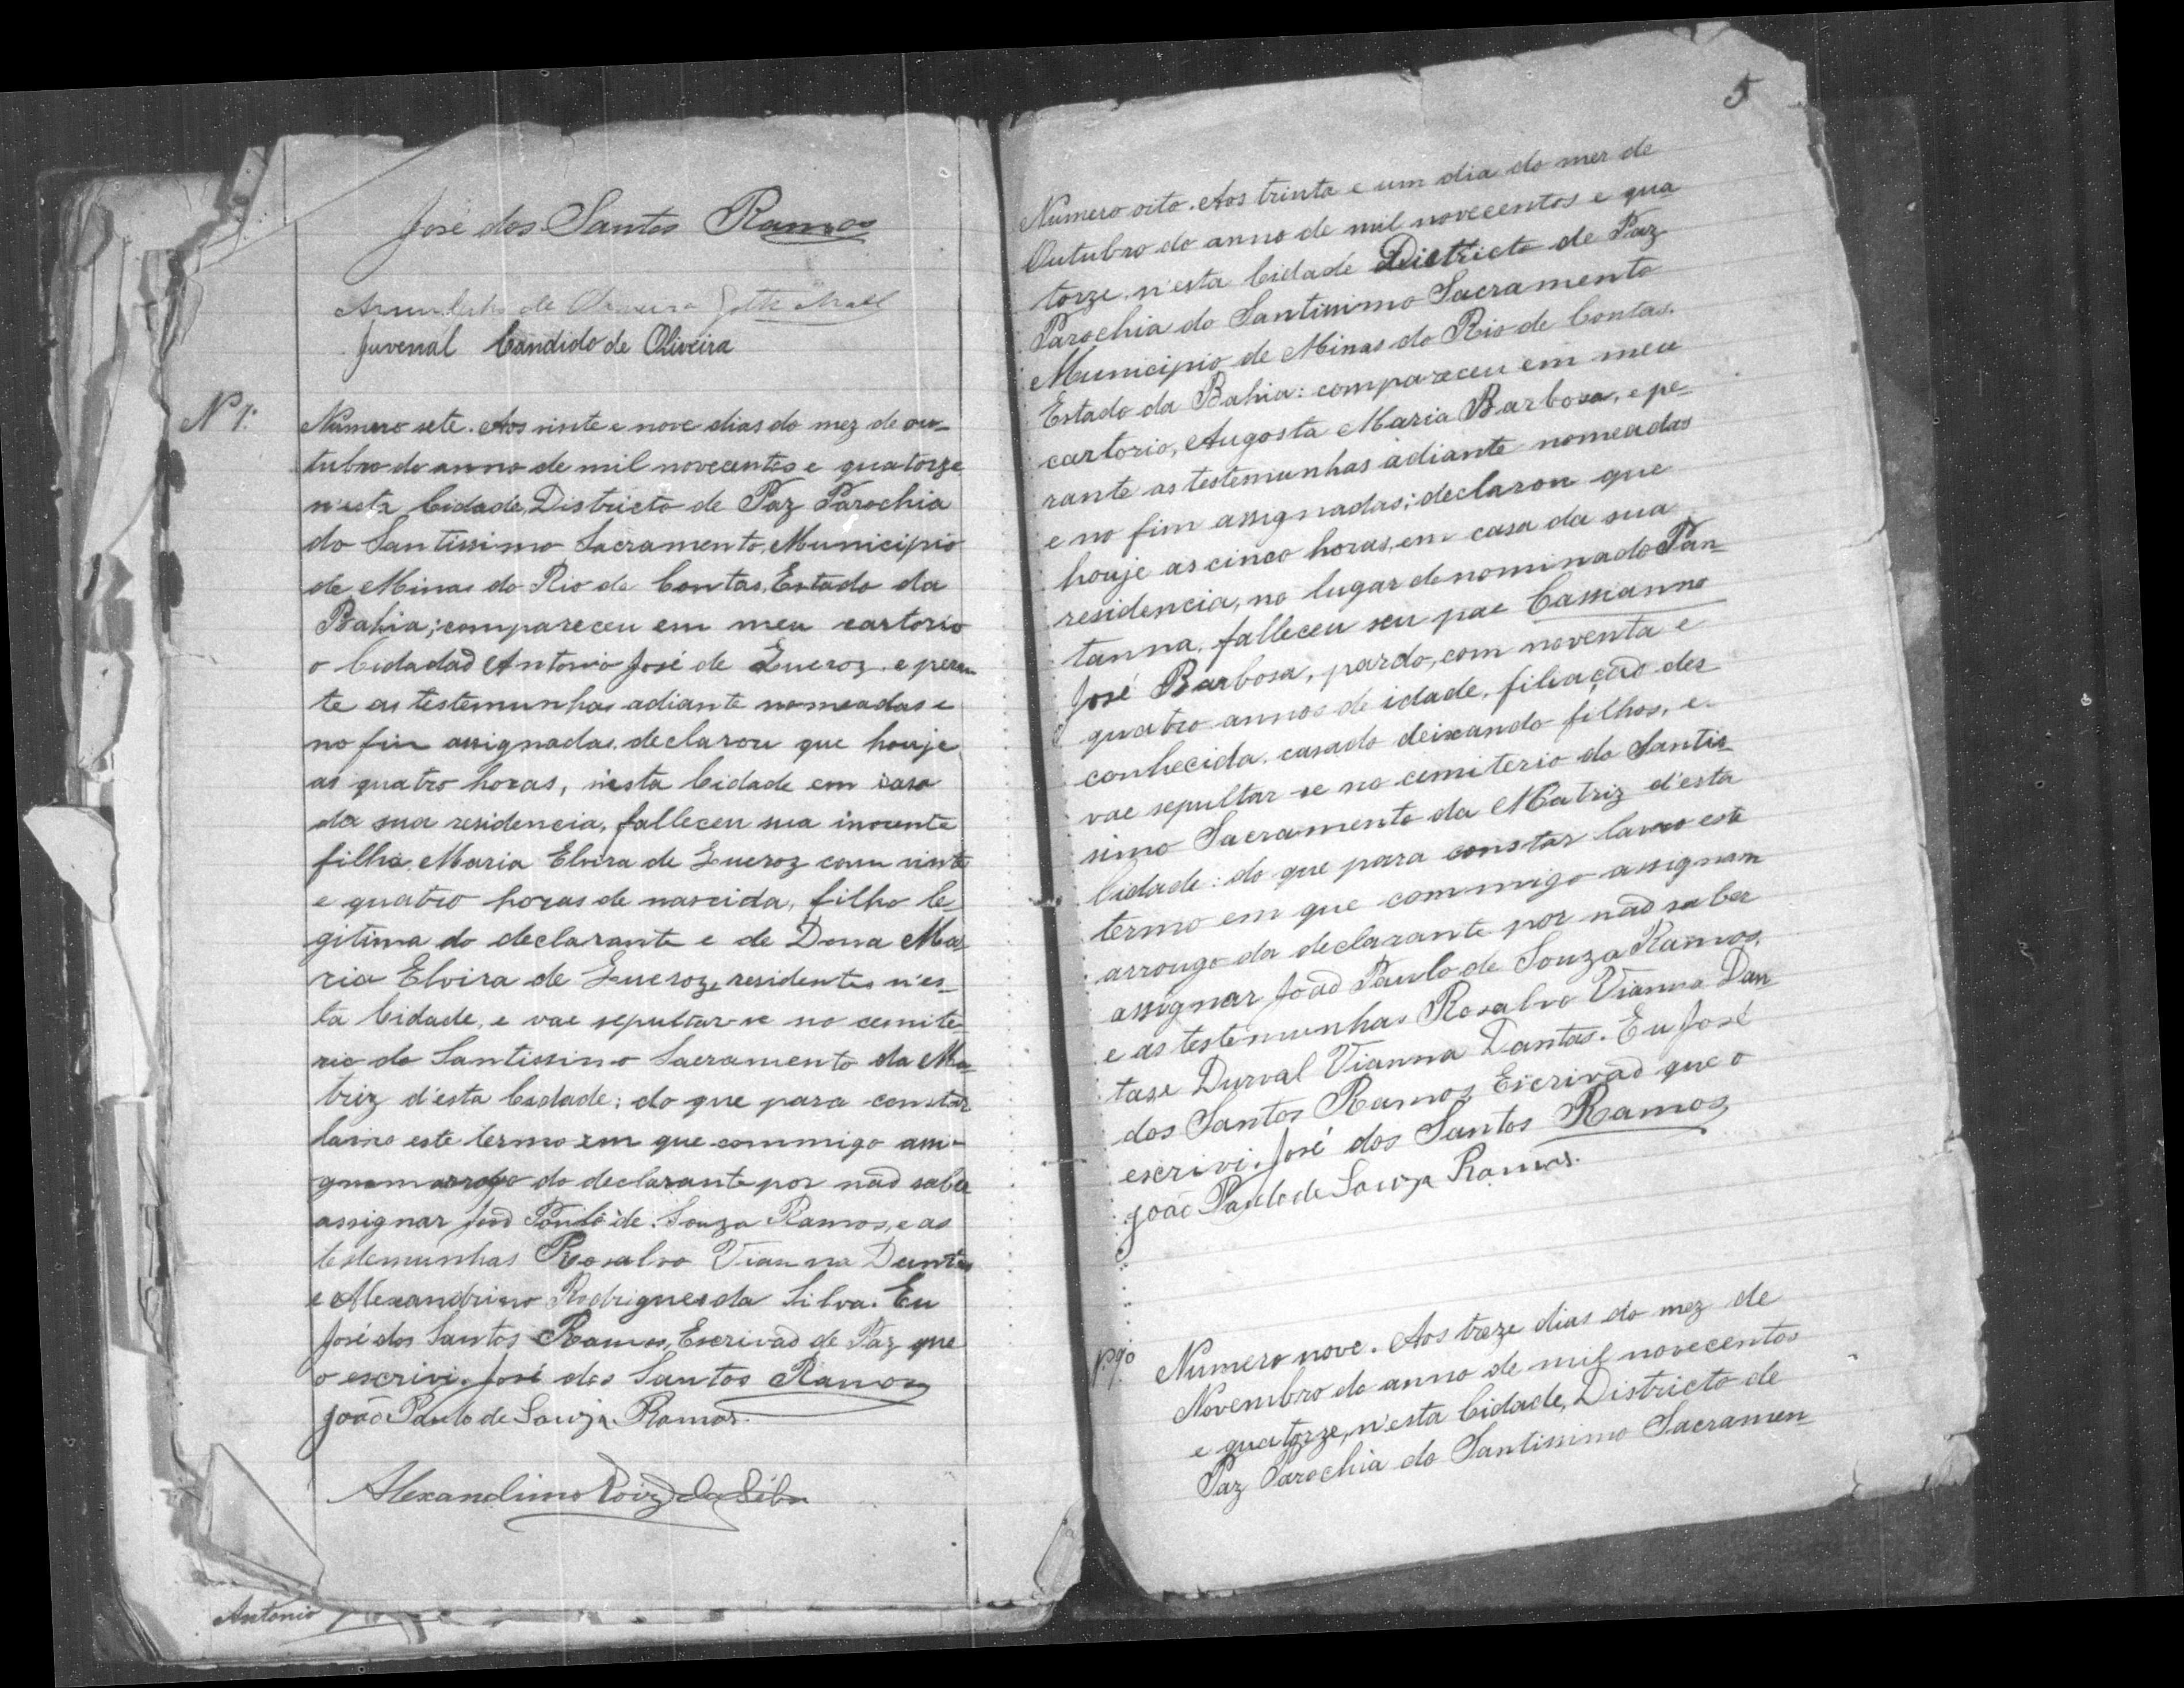 José dos Santos Ramos
de Oliveira
Juvenal Candido de Oliveira
Nº 7.
Numero sete. Aos vinte e nove dias do mez de ou-
tubro do anno de mil novecentos e quatorze
n'esta Cidade, Districto de Paz Parochia
do Santissimo Sacramento, Municipio
de Minas do Rio de Contas, Estado da
Bahia; compareceu em meu cartorio
o Cidadaõ Antonio José de Queroz, e peran
te as testemunhas adiante nomeadas e
no fim assignadas, declarou que houje
as quatro horas, n'esta Cidade em casa
da sua residencia, falleceu sua inocente
filha Maria Elvira de Queroz com vinte
e quatro horas de nascida, filha le-
gitima do declarante e de Dona Ma-
ria Elvira de Queroz, residentes n'es-
ta Cidade, e vae sepultar-se no cemite-
rio do Santissimo Sacramento da Ma-
triz d'esta Cidade; do que para constar
lavro este termo em que commigo assi-
gnam arrogo do declarante por naõ saber
assignar Joaõ Paulo de Souza Ramos, e as
testemunhas Rosalvo Vianna Dantas
e Alexandrino Rodrigues da Silva. Eu
José dos Santos Ramos, Escrivaõ de Paz que
o escrivi. José dos Santos Ramos
João Paulo de Souza Ramos.
Alexandrino Roiz da Silva
Antonio
5
Numero oito. Aos trinta e um dia do mez de
Outubro do anno de mil novecentos e qua
torze, n'esta Cidade Districto de Paz
Parochia do Santissimo Sacramento
Municipio de Minas do Rio de Contas.
Estado da Bahia: compareceu em meu
cartorio, Augosta Maria Barbosa, e pe-
rante as testemunhas adiante nomeadas
e no fim assignadas; declarou que
houje as cinco horas, em casa da sua
residencia, no lugar denominado Pan-
tanna, falleceu seu pae Cassianno
José Barbosa, pardo, com noventa e
quatro annos de idade, filiaçaõ des-
conhecida, casado deixando filhos, e
vae sepultar-se no cemiterio do Santis-
simo Sacramento da Matriz d'esta
Cidade: do que para constar lavro este
termo em que commigo assignam
arrougo da declarante por naõ saber
assignar Joaõ Paulo de Souza Ramos,
e as testemunhas Rosalvo Vianna Dan
tas e Durval Vianna Dantas. Eu José
dos Santos Ramos Escrivaõ que o
escrivi. José dos Santos Ramos
João Paulo de Souza Ramos.
Nº 9º
Numero nove. Aos treze dias do mez de
Novembro do anno de mil novecentos
e quatorze, n'esta Cidade, Districto de
Paz Parochia do Santissimo Sacramen-